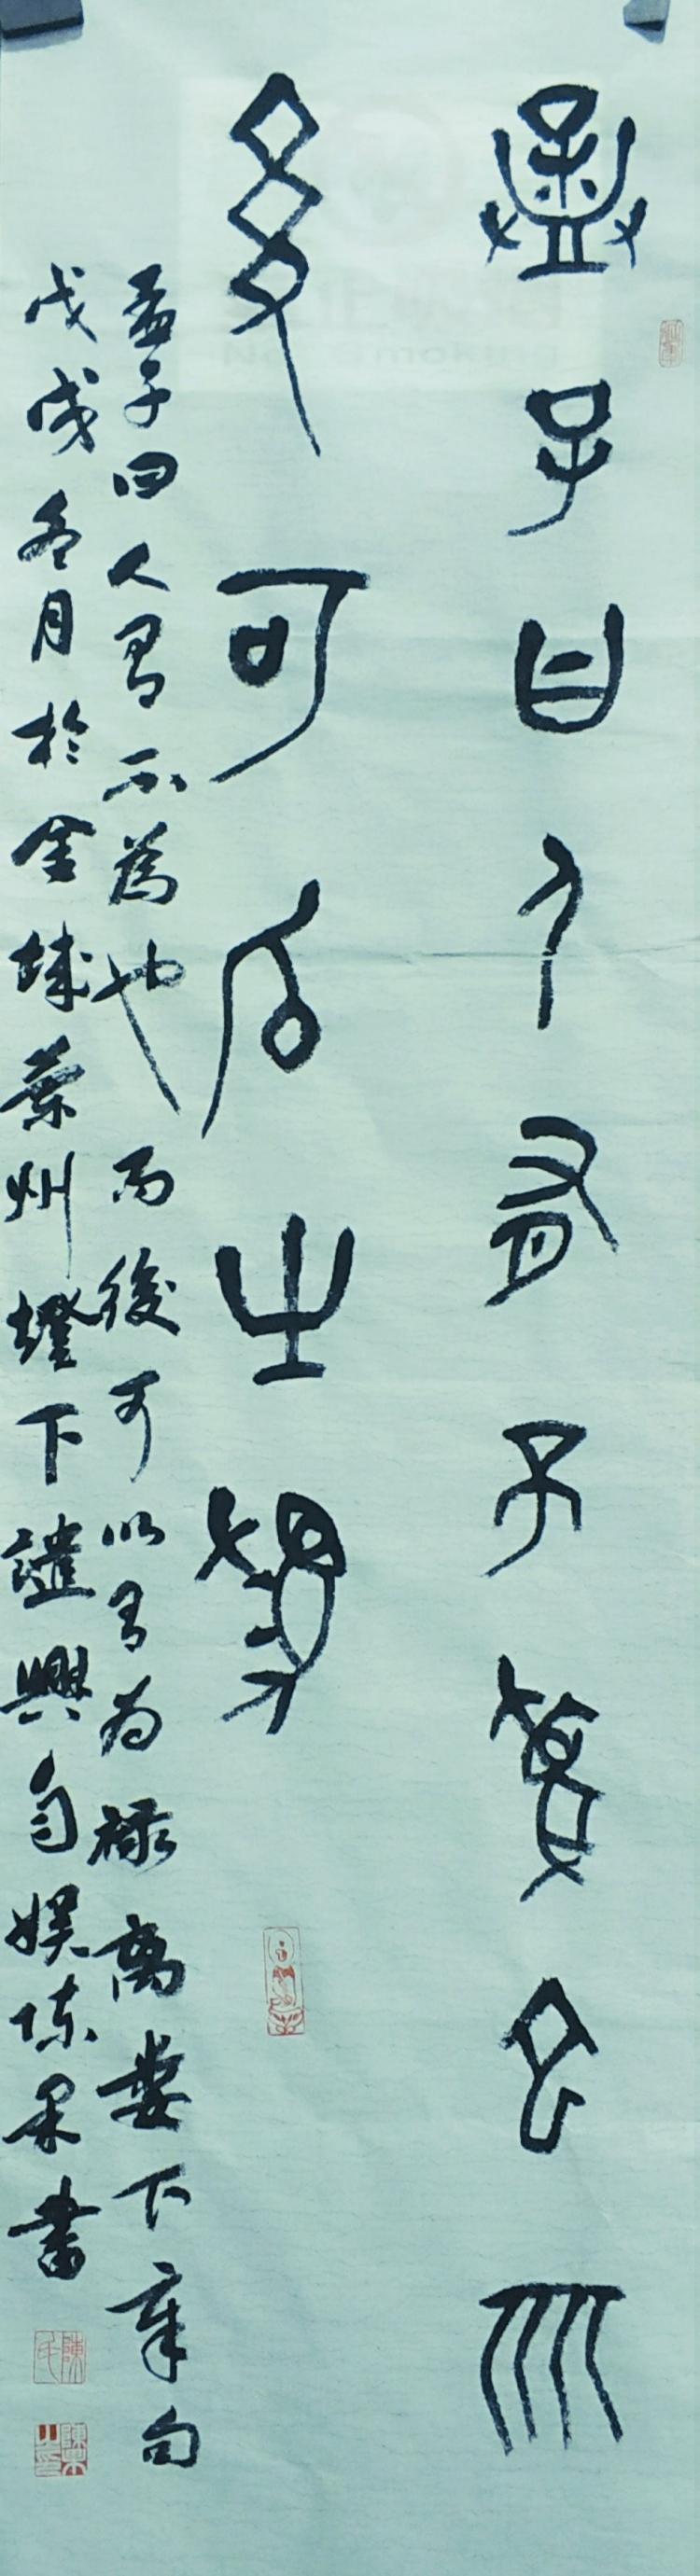 孟子曰人有不為也而
後可以有為
孟子曰人有不為也而後可以有為禄離婁下章句
戊戌冬月於金城蘭州燈下遣興自娱陳果書